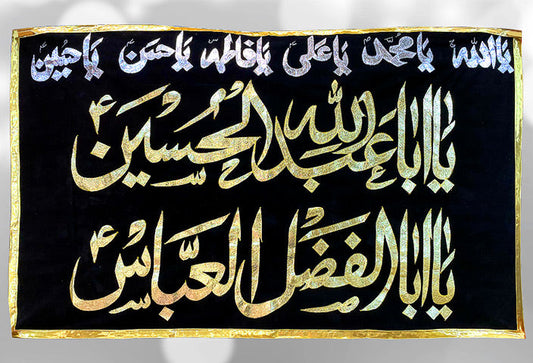 یا اللہ یا محمد یا علی یا فاطمہ یا حسن یا حسین
یا ابا عبد الله الحسین ع
یا ابا الفضل العباس ع